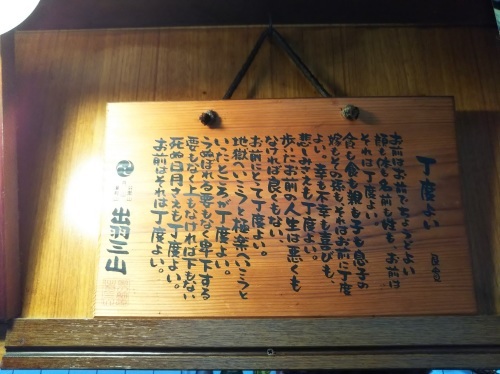 丁度よい
お前はお前でちょうどよい
顔も体も名前も姓も お前は
それは丁度よい
も親も子も息子の
嫁もその孫もそれはお前に丁度
よい。幸も不幸も喜びも、
悲しみさえも丁度よい。
歩いたお前の人生は悪くも
なければ良くもない、
お前にとって丁度よい。
地獄へいこうと極楽へいこうと
いったところが丁度よい。
うぬぼれる要もなく卑下する
要もなく上もなければ下もない
死ぬ日月さえも丁度よい。
お前はそれは丁度よい。
卍 出羽三山